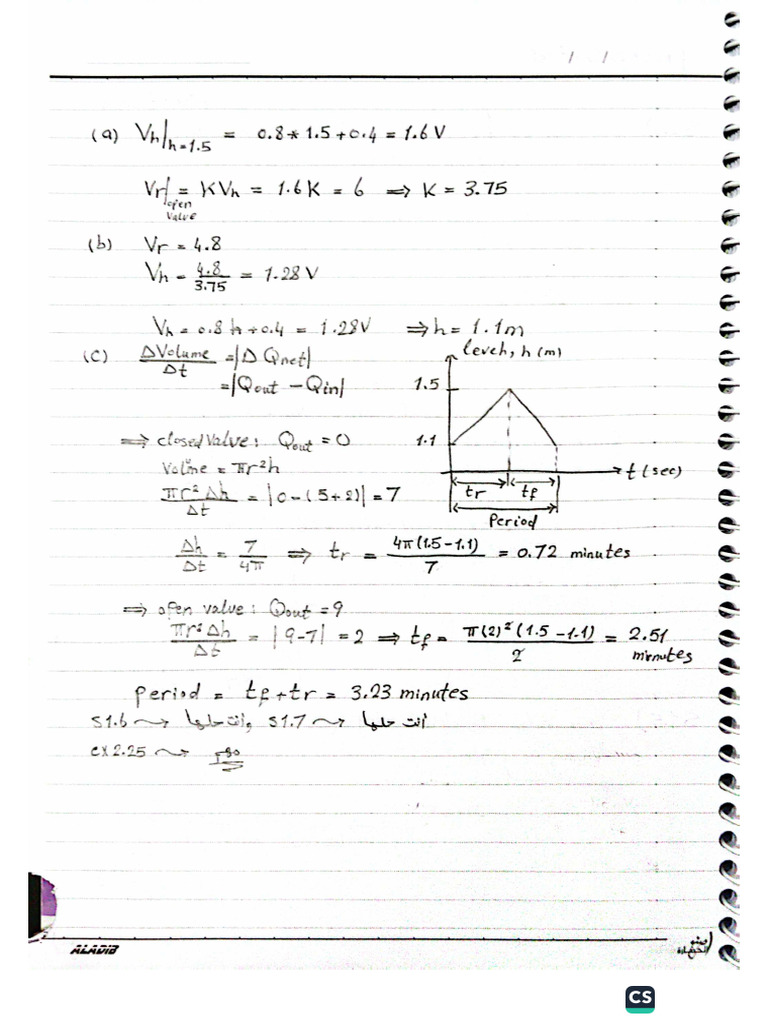 / /
(a) Vh|h=1.5 = 0.8*1.5+0.4 = 1.6 V
Vr|open valve = KVh = 1.6K = 6 ⇒ K = 3.75
(b) Vr = 4.8
Vh = 4.8/3.75 = 1.28 V
Vh = 0.8 h + 0.4 = 1.28V ⇒ h = 1.1m
(C) ΔVolume/Δt = |Δ Qnet|
= |Qout - Qin|
level, h (m)
1.5
1.1
t (sec)
tr tf
Period
⇒ closed valve: Qout = 0
Volume = πr²h
πr²Δh/Δt = |0-(5+2)| = 7
Δh/Δt = 7/4π ⇒ tr = 4π(1.5-1.1)/7 = 0.72 minutes
⇒ open valve: Qout = 9
πr²Δh/Δt = |9-7| = 2 ⇒ tf = π(2)²(1.5-1.1)/2 = 2.51 minutes
Period = tf + tr = 3.23 minutes
S1.6 ⇝ أنت حلها, S1.7 ⇝ أنت حلها
ex 2.25 ⇝
ALADIB
CS